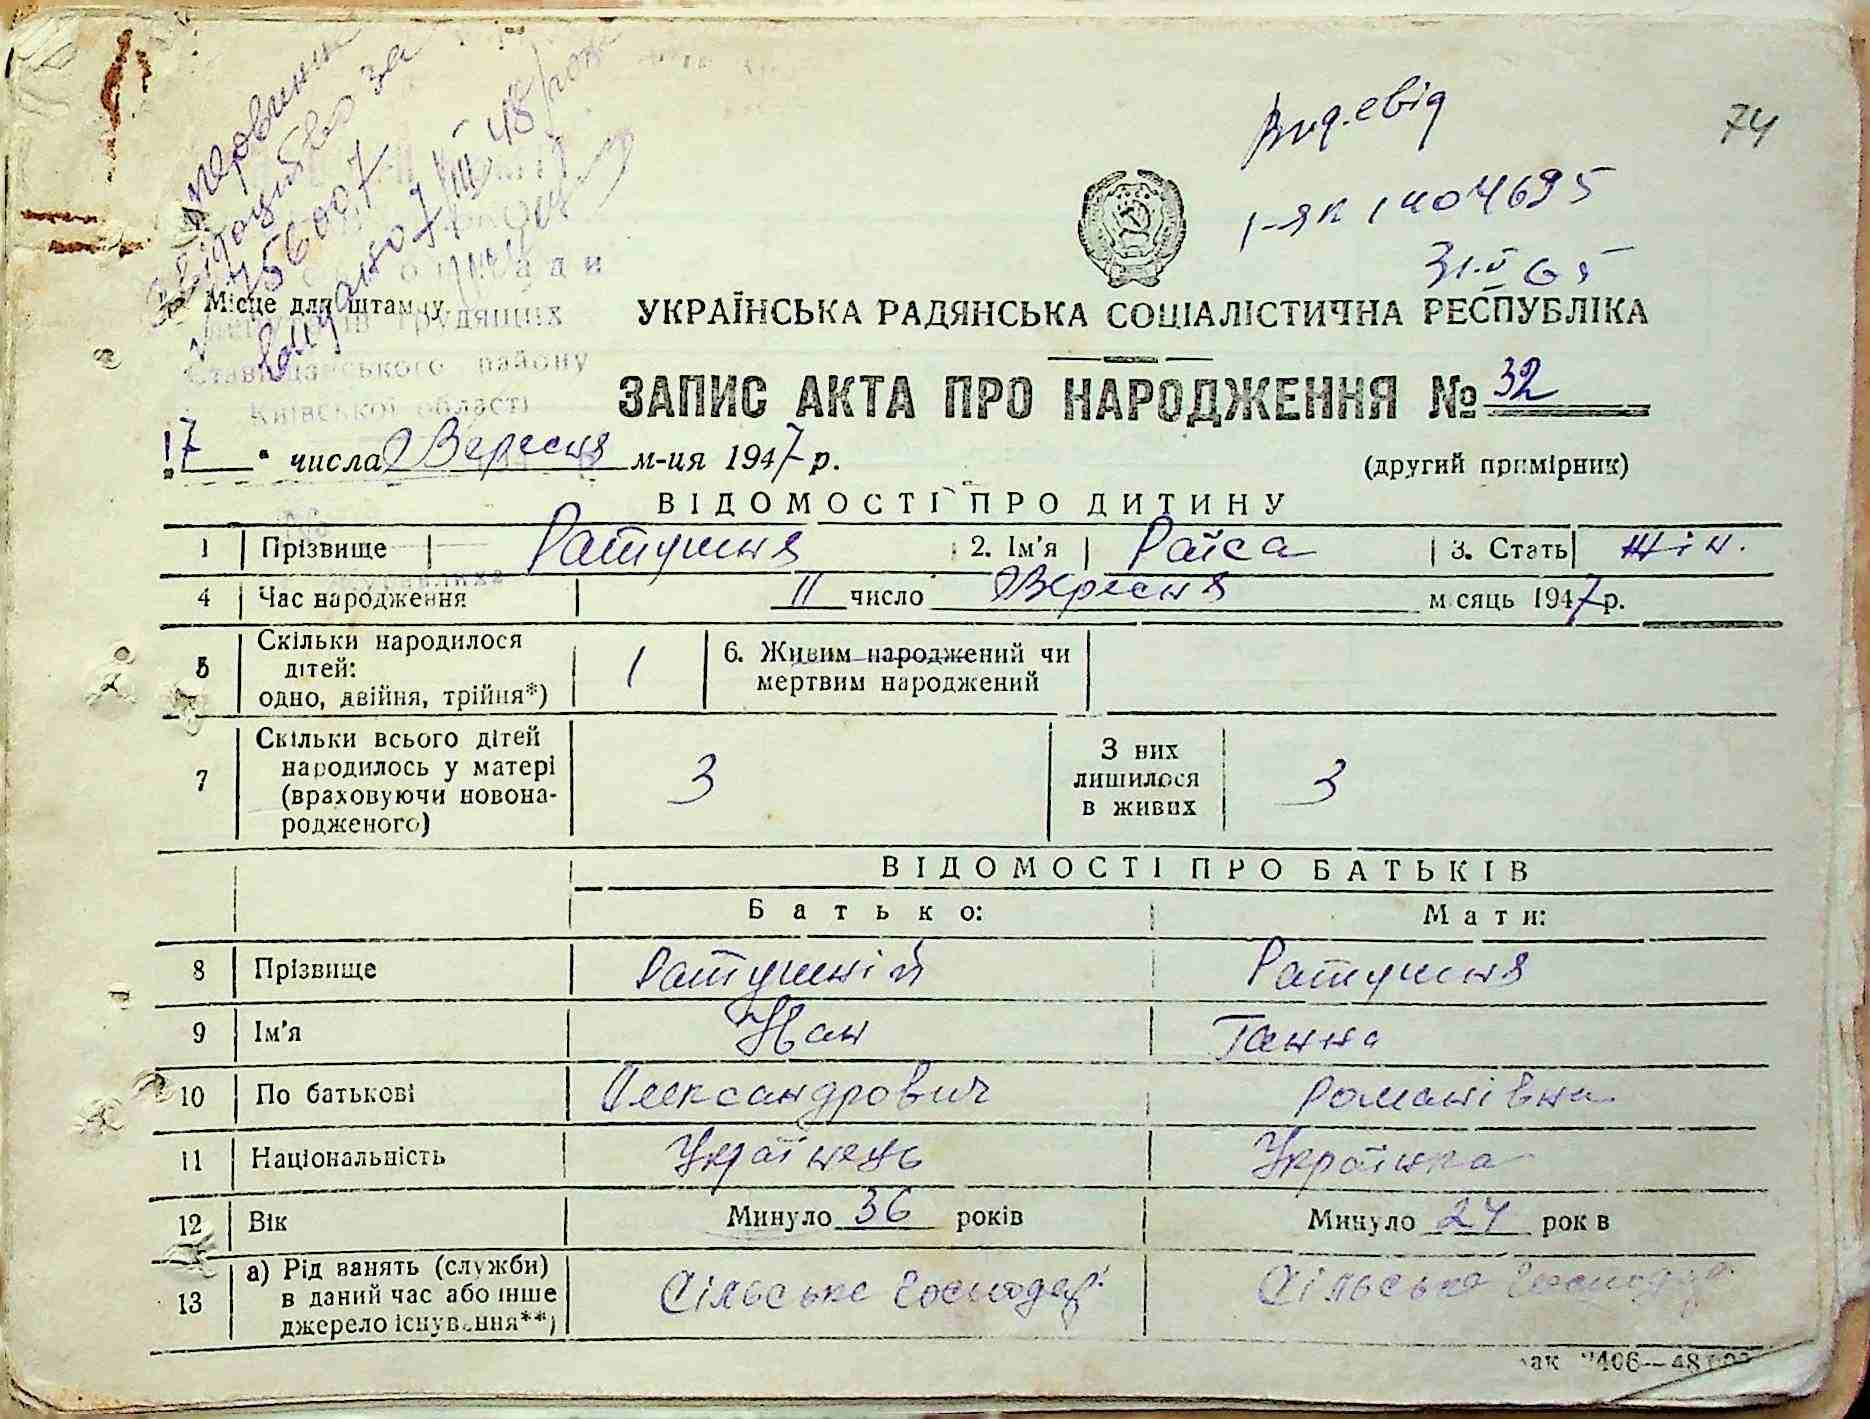 74
Вид. свід
I-ЯК 1404695
31.V 65
Місце для штампу
депутатів трудящих
Ставищанського району
Київської області
УКРАЇНСЬКА РАДЯНСЬКА СОЦІАЛІСТИЧНА РЕСПУБЛІКА
ЗАПИС АКТА ПРО НАРОДЖЕННЯ № 32
"17" числа Вересня м-ця 1947 р.
(другий примірник)
ВІДОМОСТІ ПРО ДИТИНУ
1 Прізвище Ратушня 2. Ім'я Раїса 3. Стать жін.
4 Час народження 11 число Вересня місяць 1947 р.
5 Скільки народилося
дітей:
одно, двійня, трійня*) 1
6. Живим народжений чи
мертвим народжений
7 Скільки всього дітей
народилось у матері
(враховуючи новона-
родженого) 3
З них
лишилося
в живих 3
ВІДОМОСТІ ПРО БАТЬКІВ
Батько: Мати:
8 Прізвище Ратушній Ратушня
9 Ім'я Іван Ганна
10 По батькові Олександрович Романівна
11 Національність Українець Українка
12 Вік Минуло 36 років Минуло 24 років
13 а) Рід занять (служби)
в даний час або інше
джерело існування**)
Сільське господар. Сільське господар.